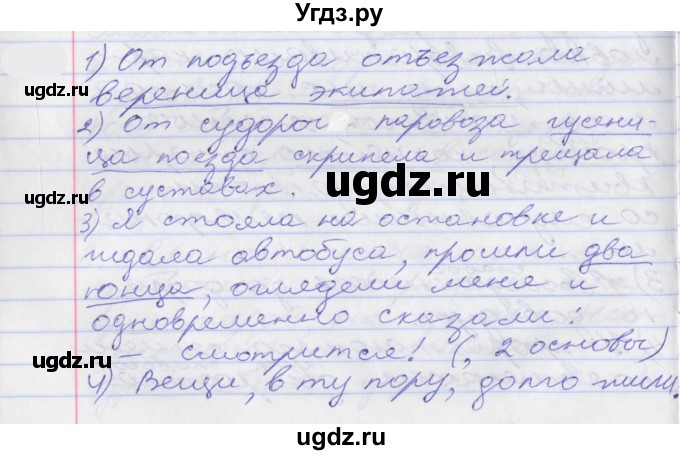 Угдз.ру
1) От подъезда отъезжала
вереница экипажей.
2) От судорог паровоза гусени-
ца поезда скрипела и трещала
в суставах.
ugdz.ru
3) Я стояла на остановке и
ждала автобуса, прошли два
юнца, оглядели меня и
одновременно сказали:
– смотрится! (, 2 основы)
4) Вещи, в ту пору, долго жили.
ugdz.ru
ugdz.ru
ugdz.ru
ugdz.ru